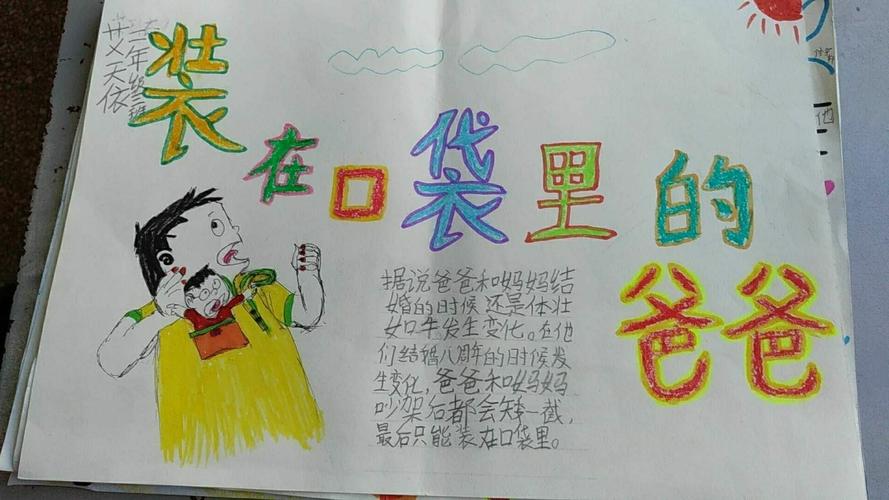 三年级三班
艾天依
装在口袋里的
爸爸
据说爸爸和妈妈结
婚的时候还是体壮
如牛发生变化。在他
们结婚八周年的时候发
生变化,爸爸和妈妈
吵架后都会矮一截,
最后只能装在口袋里。
他